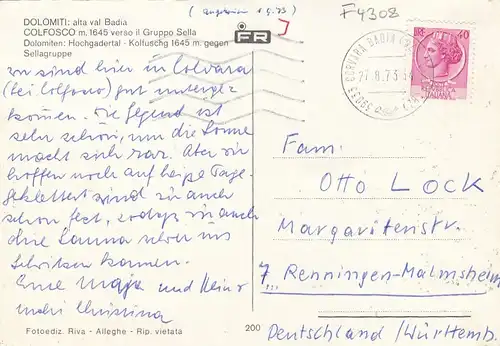 DOLOMITI: alta val Badia
COLFOSCO m. 1645 verso il Gruppo Sella
Dolomiten: Hochgadertal - Kolfuschg 1645 m. gegen
Sellagruppe
wir sind hier in Colvara
(bei Colfosco) gut unterge-
kommen. Die Gegend ist
sehr schön, nur die Sonne
macht sich rar. Aber wir
hoffen noch auf heiße Tage.
geklettert sind wir auch
schon fest, wir auch
ohne Sauna schon ins
Schwitzen kommen.
Eure Maja und Heinz
und Christina
Fotoediz. Riva - Alleghe - Rip. vietata
200
5.73)
F4308
FR
CORVARA BADIA
27.8.73
40
Fam.
OTTO LOCK
Margaritenstr.
7 Renningen-Malmsheim
Deutschland /Württemb.